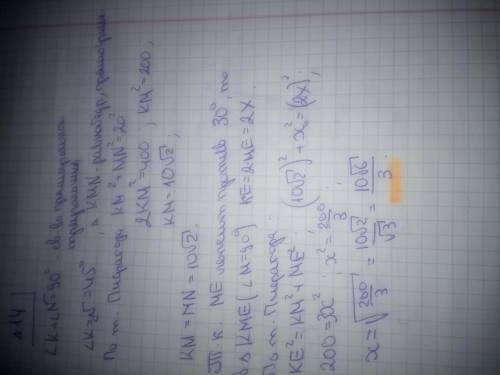 №14
∠K+∠N=90° св-во прямоугольного
треугольника
∠K=∠N=45° ∆ KMN - равнобедр, прямоугольн
По т. Пифагора KM²+MN²=20²
2KM²=400 , KM²=200 ,
KM=10√2 ;
KM = MN = 10√2.
Т.к. ME лежит против 30°, то
в ∆ KME (∠M=90°) KE=2ME=2x.
По т. Пифагора :
KE²=KM²+ME² (10√2)²+x²=(2x)² ;
200=3x² ; x²=200/3 ;
x=√200/3 = 10√2/√3 = 10√6/3 .